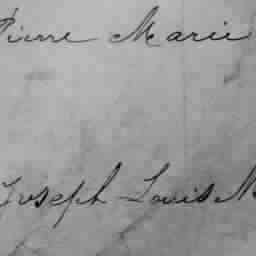 Pierre Marie
Joseph Louis M